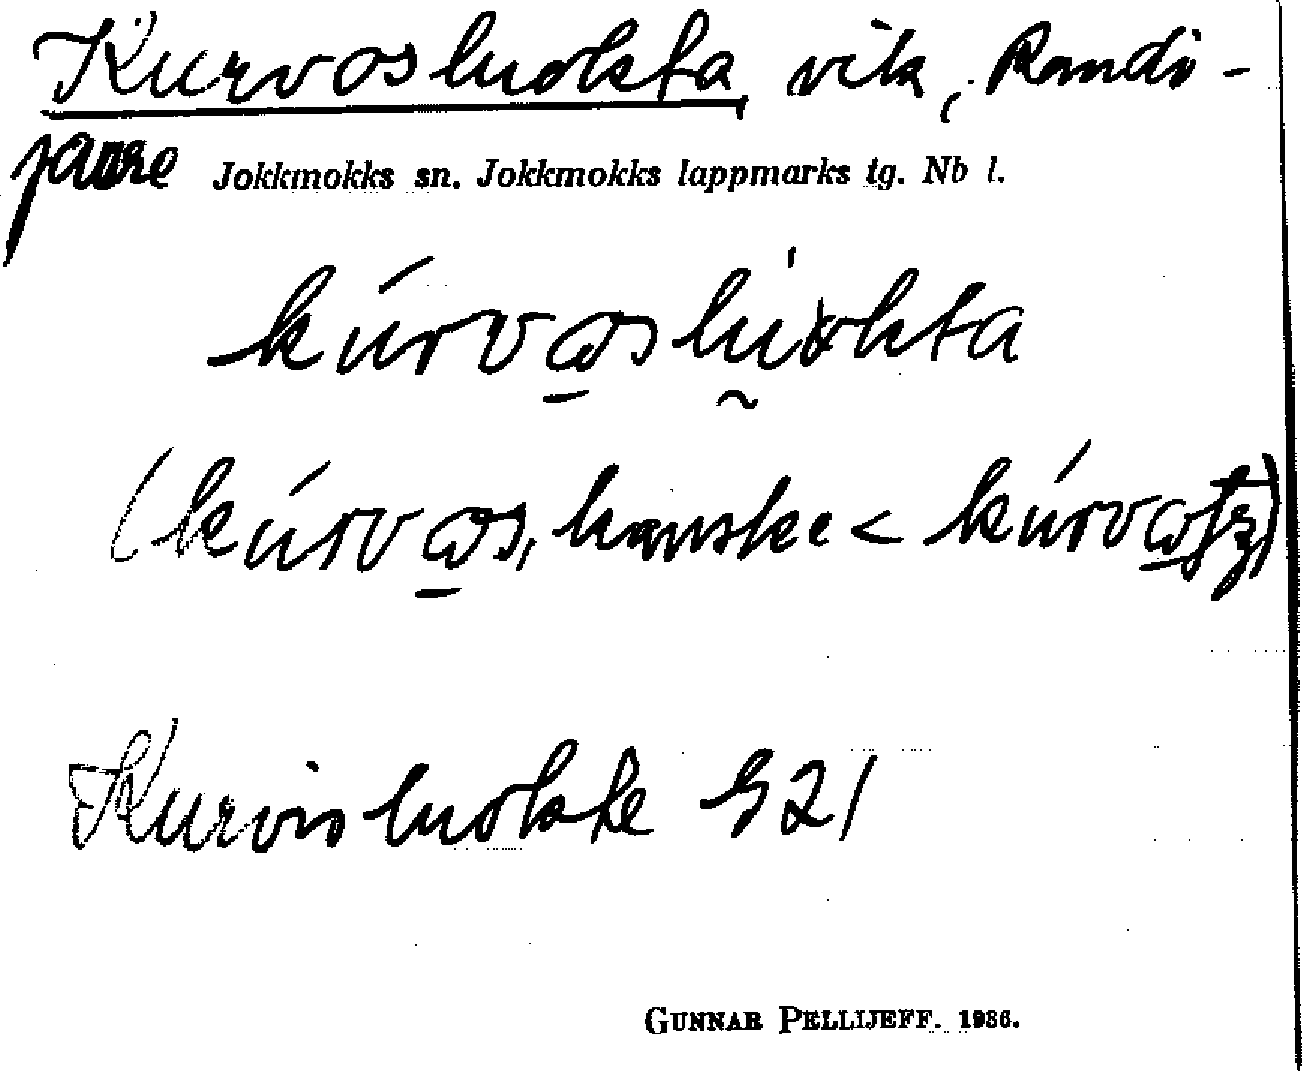 Kurvosluokta, vik, Randi-
jaure Jokkmokks sn. Jokkmokks lappmarks tg. Nb l.
kúrvo̱slṵ'okta
(kúrvo̱s, kanske <
Kurvisluokte 521
GUNNAR PELLIJEFF. 1936.